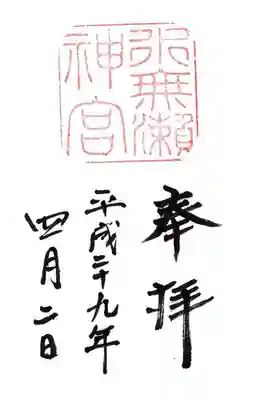 水無瀬
神宮
奉拝
平成二十九年
四月二日